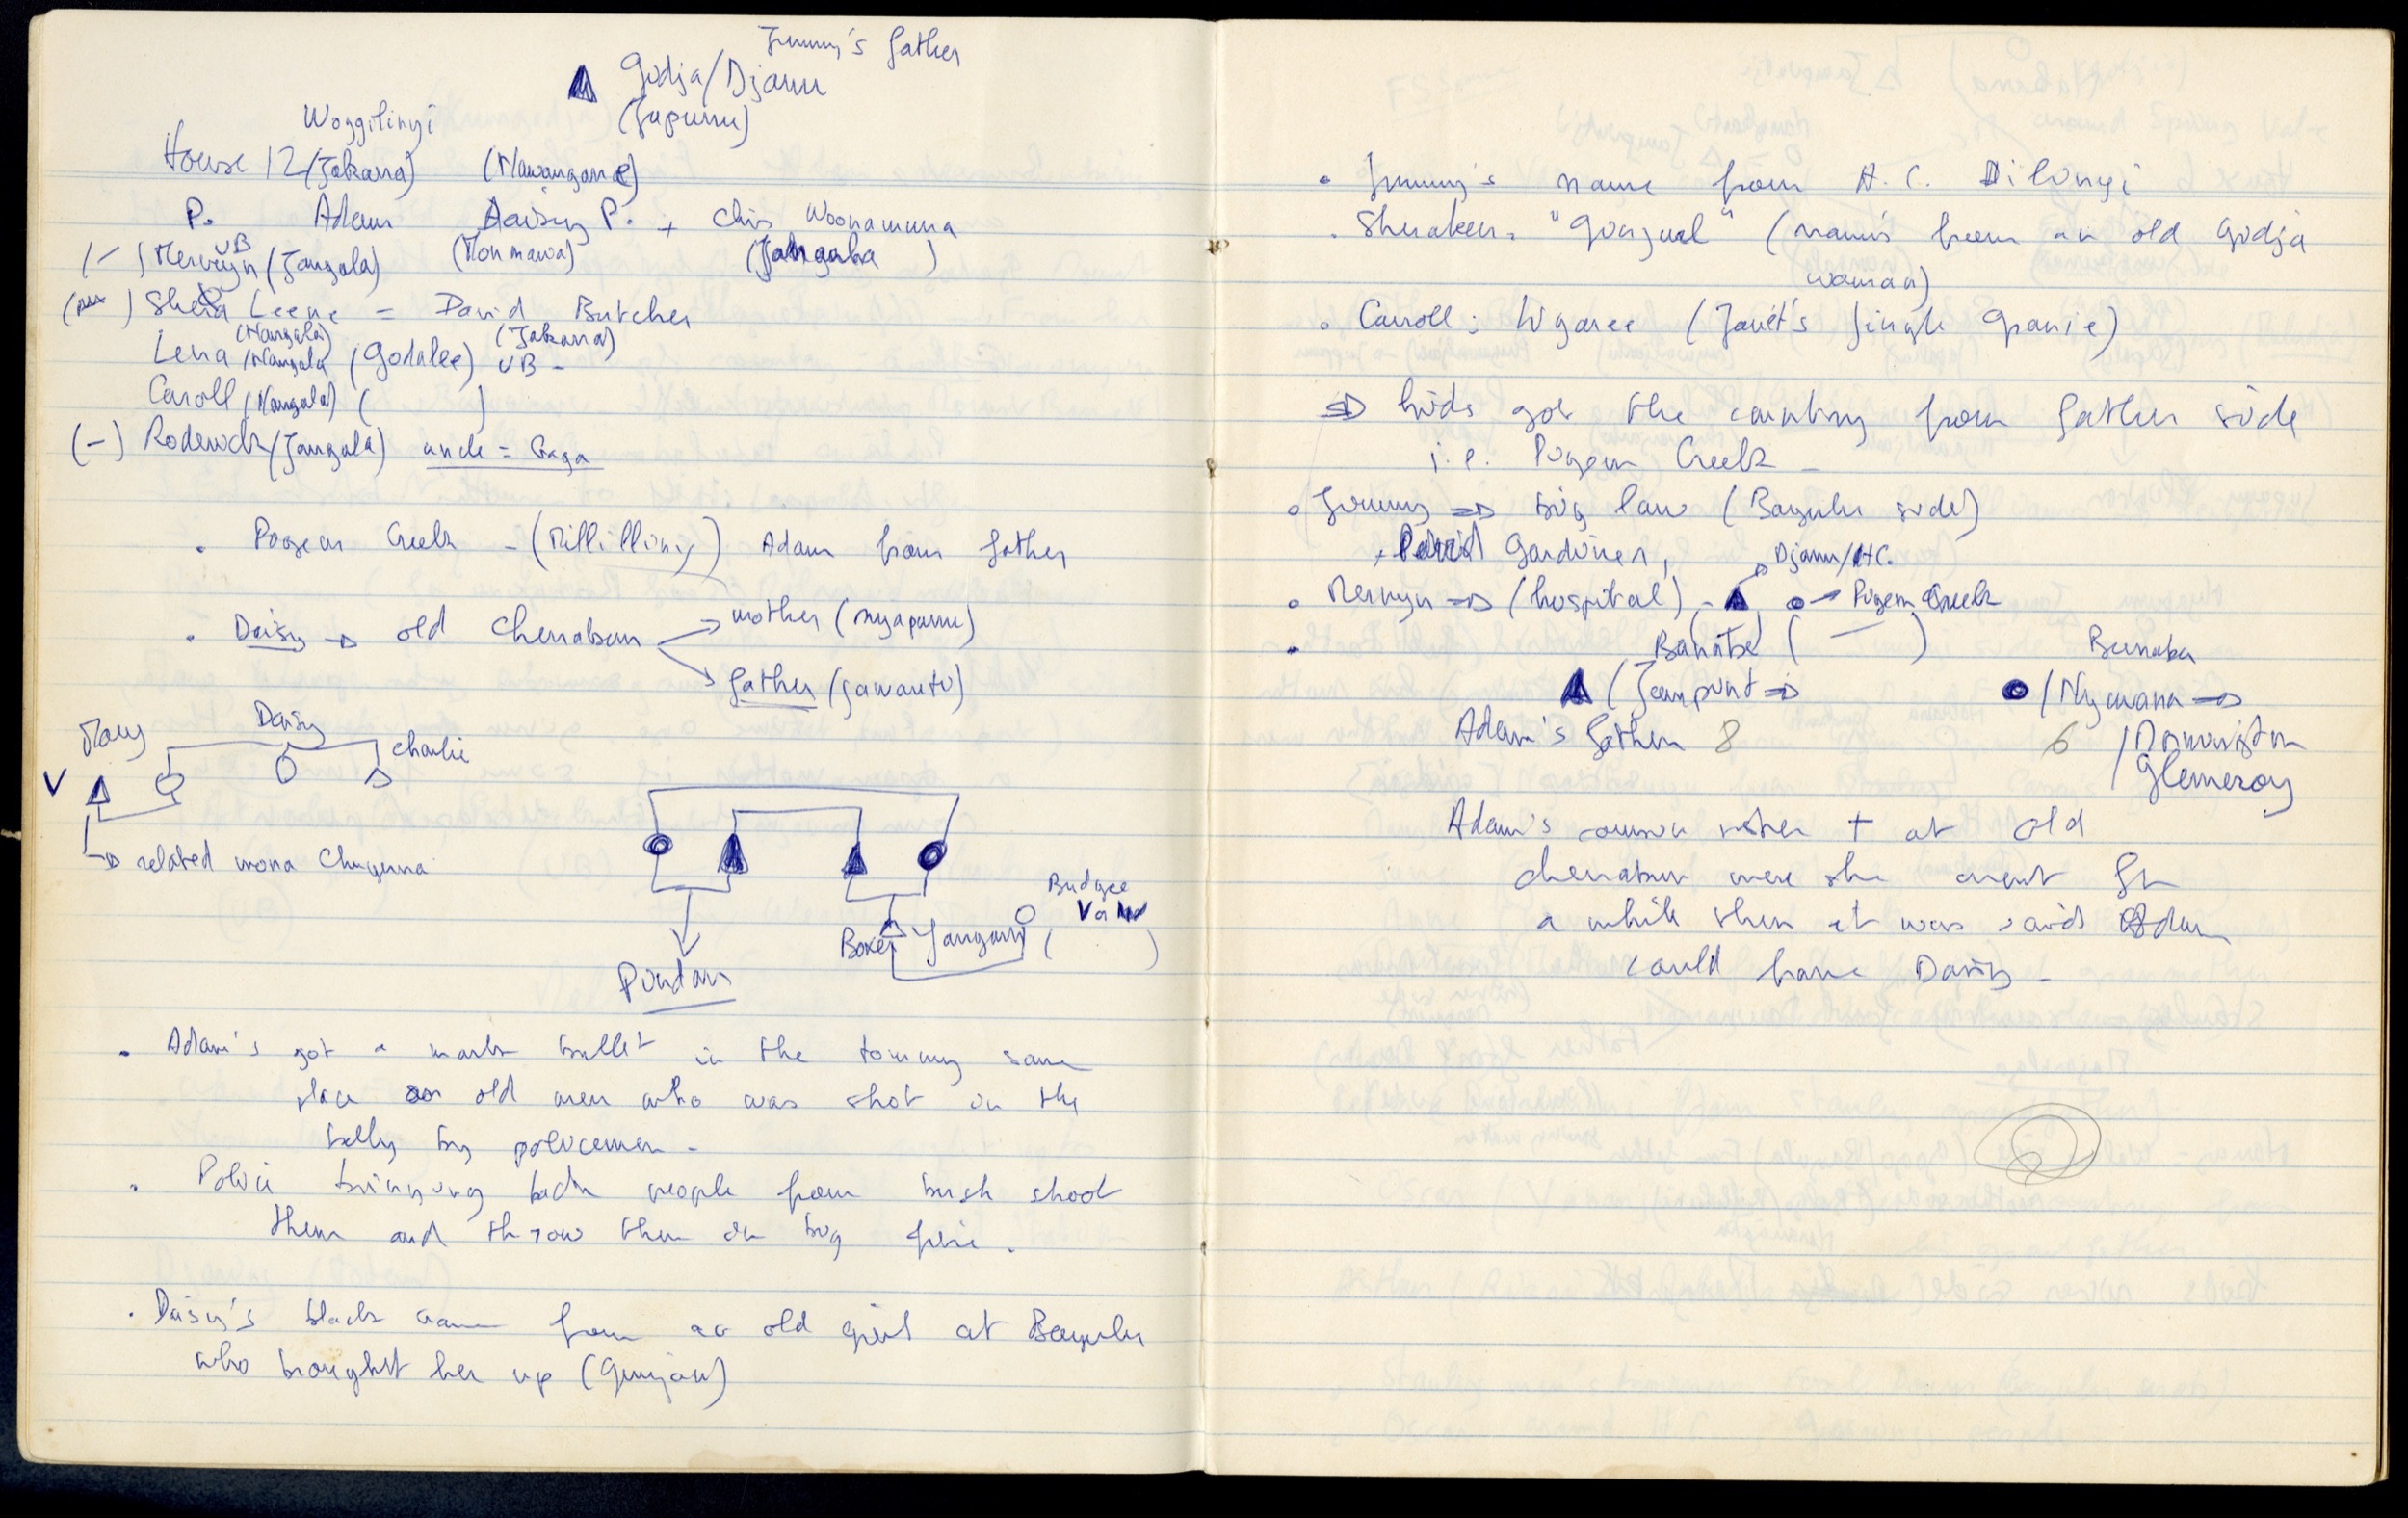 Jimmy's father
Godja/Djaru
(Japurru)
Woggilinyi
House 12 (Jakarra) (Nawangari)
P. Adam Daisy P. + Chris Woonamurra
(-) Mervyn (Jangala) (Monmawa) (Jangala)
UB
Leene = David Butcher
(Nangala) (Jakarra)
Lena (Nangala) (Godalee) UB -
Caroll (Nangala) ( )
(-) Roderick (Jangala) uncle = Gaga
. Creek - (Millilliny) Adam from father
. Daisy → old Cherrabun
mother (nyapurru)
father (jawanti)
Daisy
Charlie
V
→ related mona
Pindan
Boxer Jangari ( )
Budgee
. Adam's got a mark bullet in the tommy same
place as old men who was shot in the
belly by policemen -
. Police bringing back people from bush shoot
them and throw them on big fire.
. Daisy's black name from an old girl at Bayulu
who brought her up
. Jimmy's name from H.C. Dilinyi
. = " " (name's from an old Godja
woman)
. Carroll : (Janet's single Granie)
⇒ kids got the country from father side
i.e. Creek -
. Jimmy ⇒ big law (Bayulu side)
, David Gardiner,
Djaru/HC.
. Mervyn ⇒ (hospital) - Creek
( ) Bunuba
(Jampint ⇒ (Nyawana ⇒
Adam's father 8 6
Glenroy
Adam's cousin sister + at old
cherrabun were she went for
a while then it was said Adam
could have Daisy -